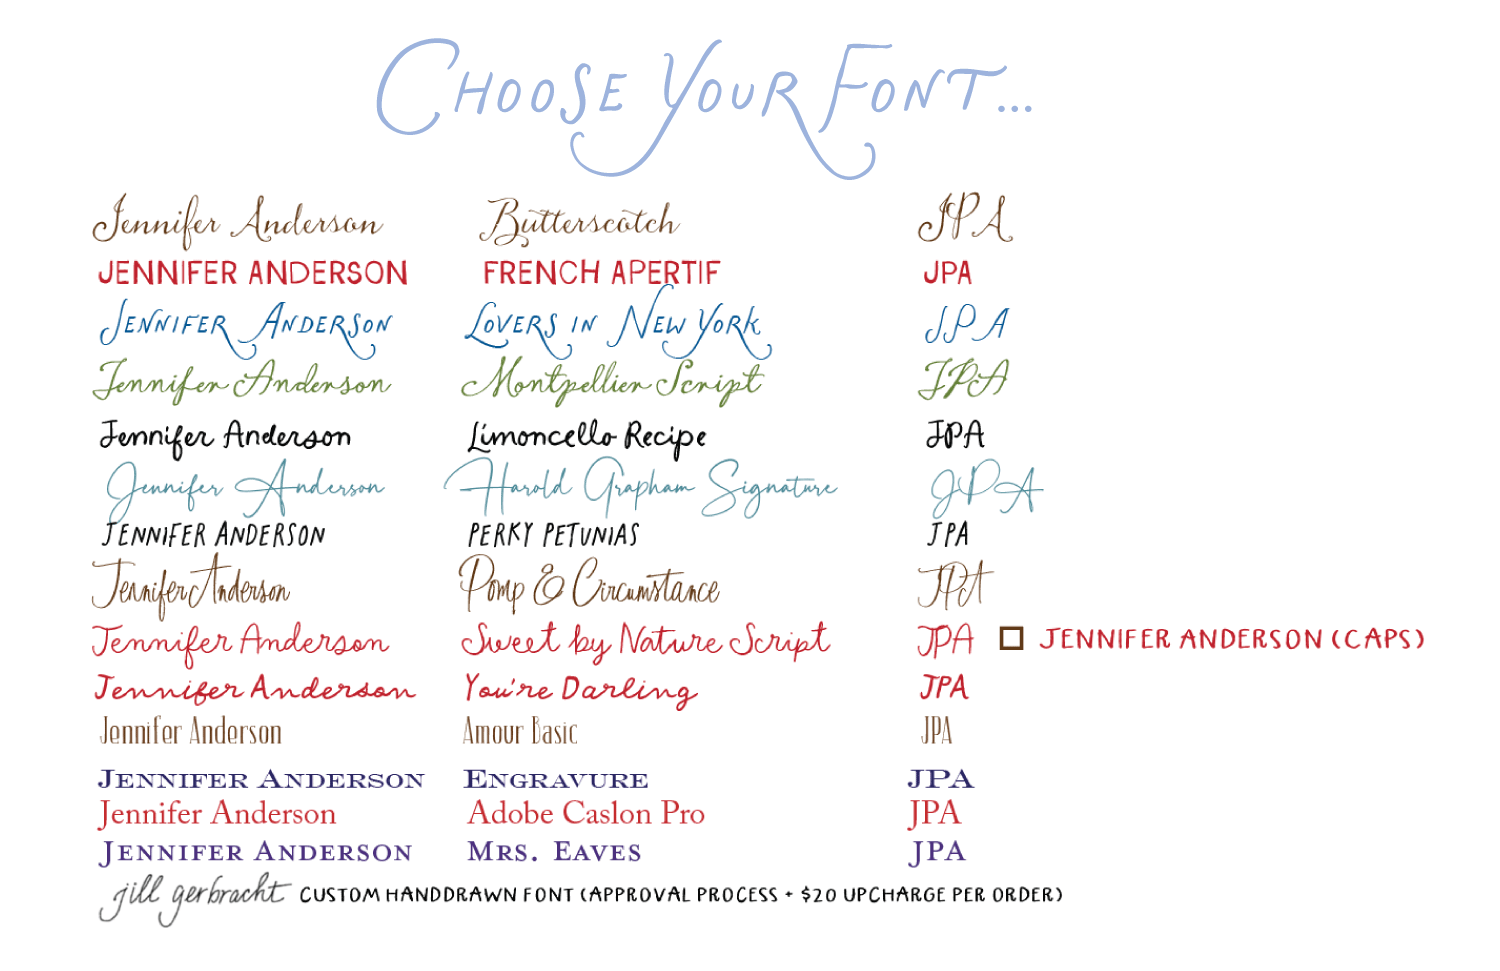 CHOOSE YOUR FONT...
Jennifer Anderson Butterscotch JPA
JENNIFER ANDERSON FRENCH APERTIF JPA
JENNIFER ANDERSON LOVERS IN NEW YORK JPA
Jennifer Anderson Montpellier Script JPA
Jennifer Anderson Limoncello Recipe JPA
Jennifer Anderson Harold Grapham Signature JPA
JENNIFER ANDERSON PERKY PETUNIAS JPA
Jennifer Anderson Pomp & Circumstance JPA
Jennifer Anderson Sweet by Nature Script JPA JENNIFER ANDERSON (CAPS)
Jennifer Anderson You're Darling JPA
Jennifer Anderson Amour Basic JPA
JENNIFER ANDERSON ENGRAVURE JPA
Jennifer Anderson Adobe Caslon Pro JPA
JENNIFER ANDERSON MRS. EAVES JPA
jill gerbracht CUSTOM HANDDRAWN FONT (APPROVAL PROCESS + $20 UPCHARGE PER ORDER)